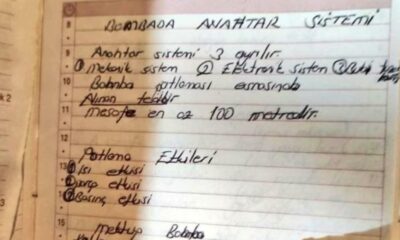 BOMBADA ANAHTAR SİSTEMİ
Anahtar sistemi 3 ayrılır.
① Mekanik sistem ② Elektronik sistem ③
Bomba patlaması esnasında
Alınan tedbir
Mesafe en az 100 metredir.
Patlama Etkileri
Isı etkisi
etkisi
Basınç etkisi
Mektup Bomba
8
9
10
11
12
13
15